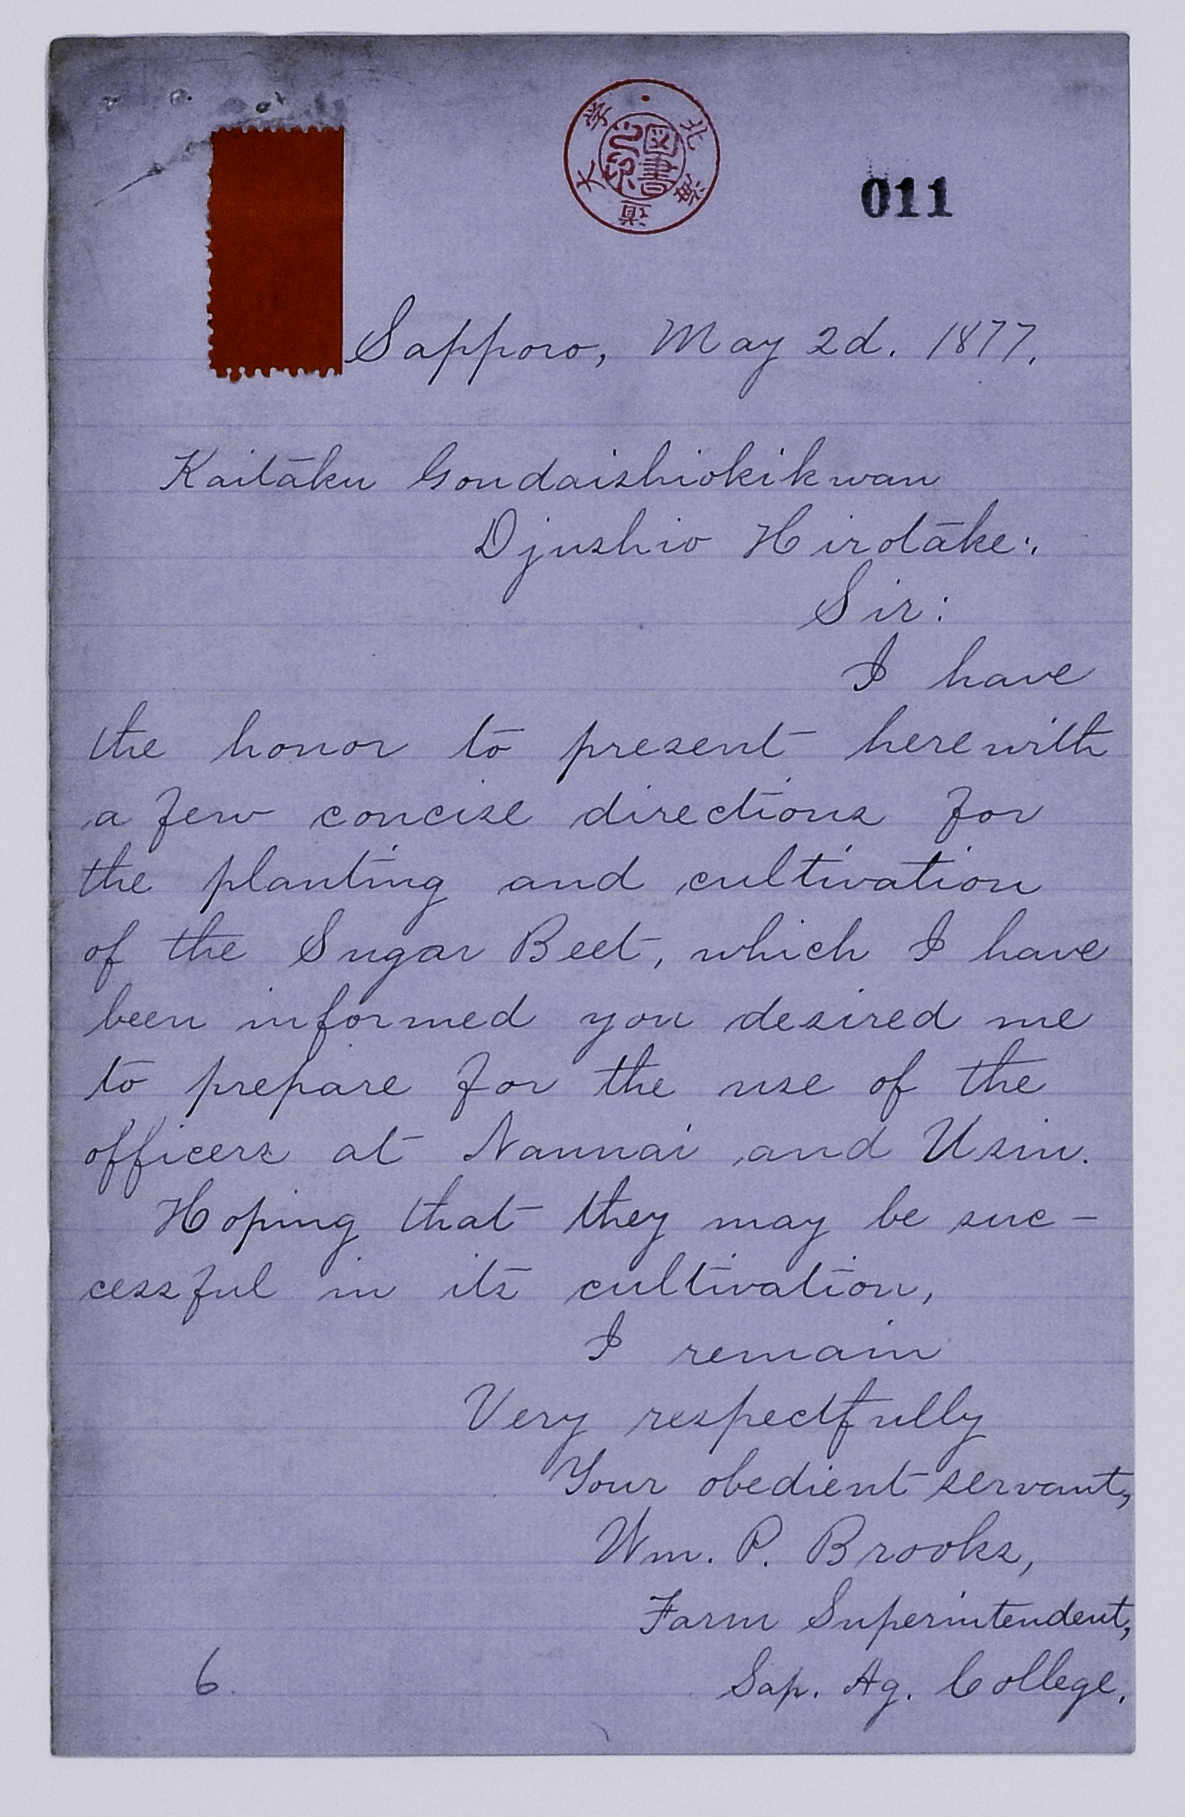 北海道大学
図書
011
Sapporo, May 2d. 1877.
Kaitāku Goudaishiokikwan
Djushio Hirotāke:.
Sir:
I have
the honor to present herewith
a few concise directions for
the planting and cultivation
of the Sugar Beet, which I have
been informed you desired me
to prepare for the use of the
officers at Nannai and Usin.
Hoping that they may be suc-
cessful in its cultivation,
I remain
Very respectfully
Your obedient servant,
Wm. P. Brooks,
Farm Superintendent,
6. Sap. Ag. College.